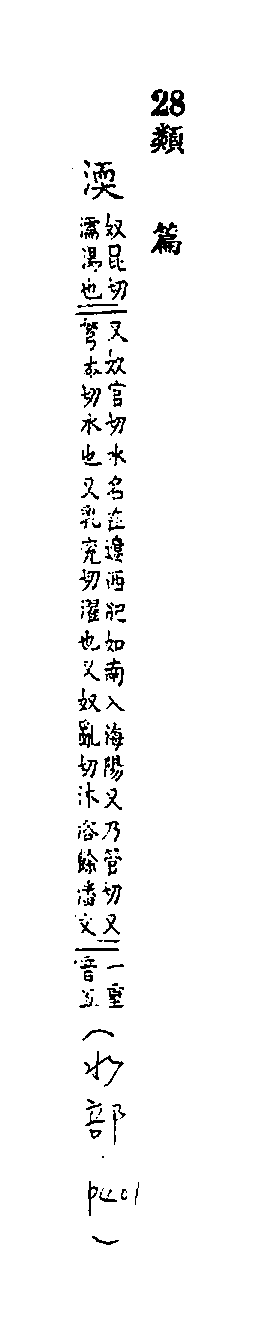 28
類篇
渜
奴昆切
濡湯也
又奴官切水名在遼西肥如南入海陽又乃管切又
弩本切水也又乳兗切濯也又奴亂切沐浴餘潘文
一重
音五
(水部.p401)